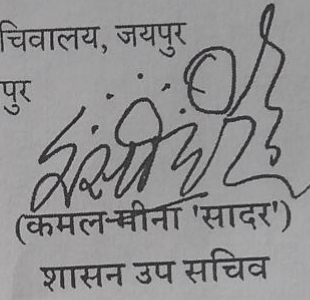 चिवालय, जयपुर
पुर
(कमल मीना 'सादर')
शासन उप सचिव